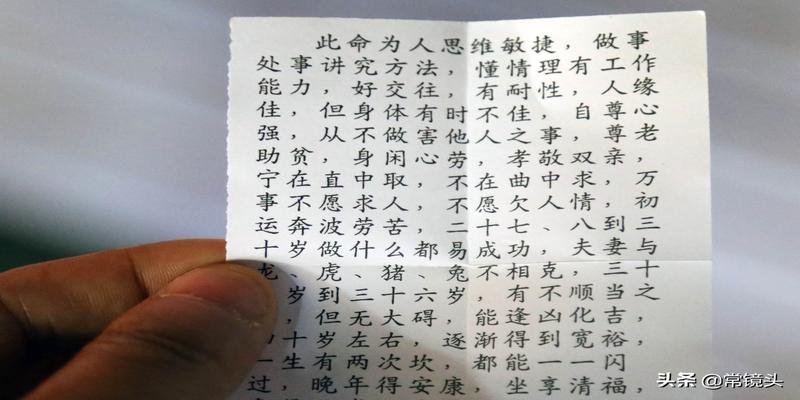 此命为人思维敏捷，做事
处事讲究方法，懂情理有工作
能力，好交往，有耐性，人缘
佳，但身体有时不佳，自尊心
强，从不做害他人之事，尊老
助贫，身闲心劳，孝敬双亲，
宁在直中取，不在曲中求，万
事不愿求人，不愿欠人情，初
运奔波劳苦，二十七、八到三
十岁做什么都易成功，夫妻与
龙、虎、猪、兔不相克，三十
岁到三十六岁，有不顺当之
，但无大碍，能逢凶化吉，
十岁左右，逐渐得到宽裕，
一生有两次坎，都能一一闪
过，晚年得安康，坐享清福，
头条 @常镜头